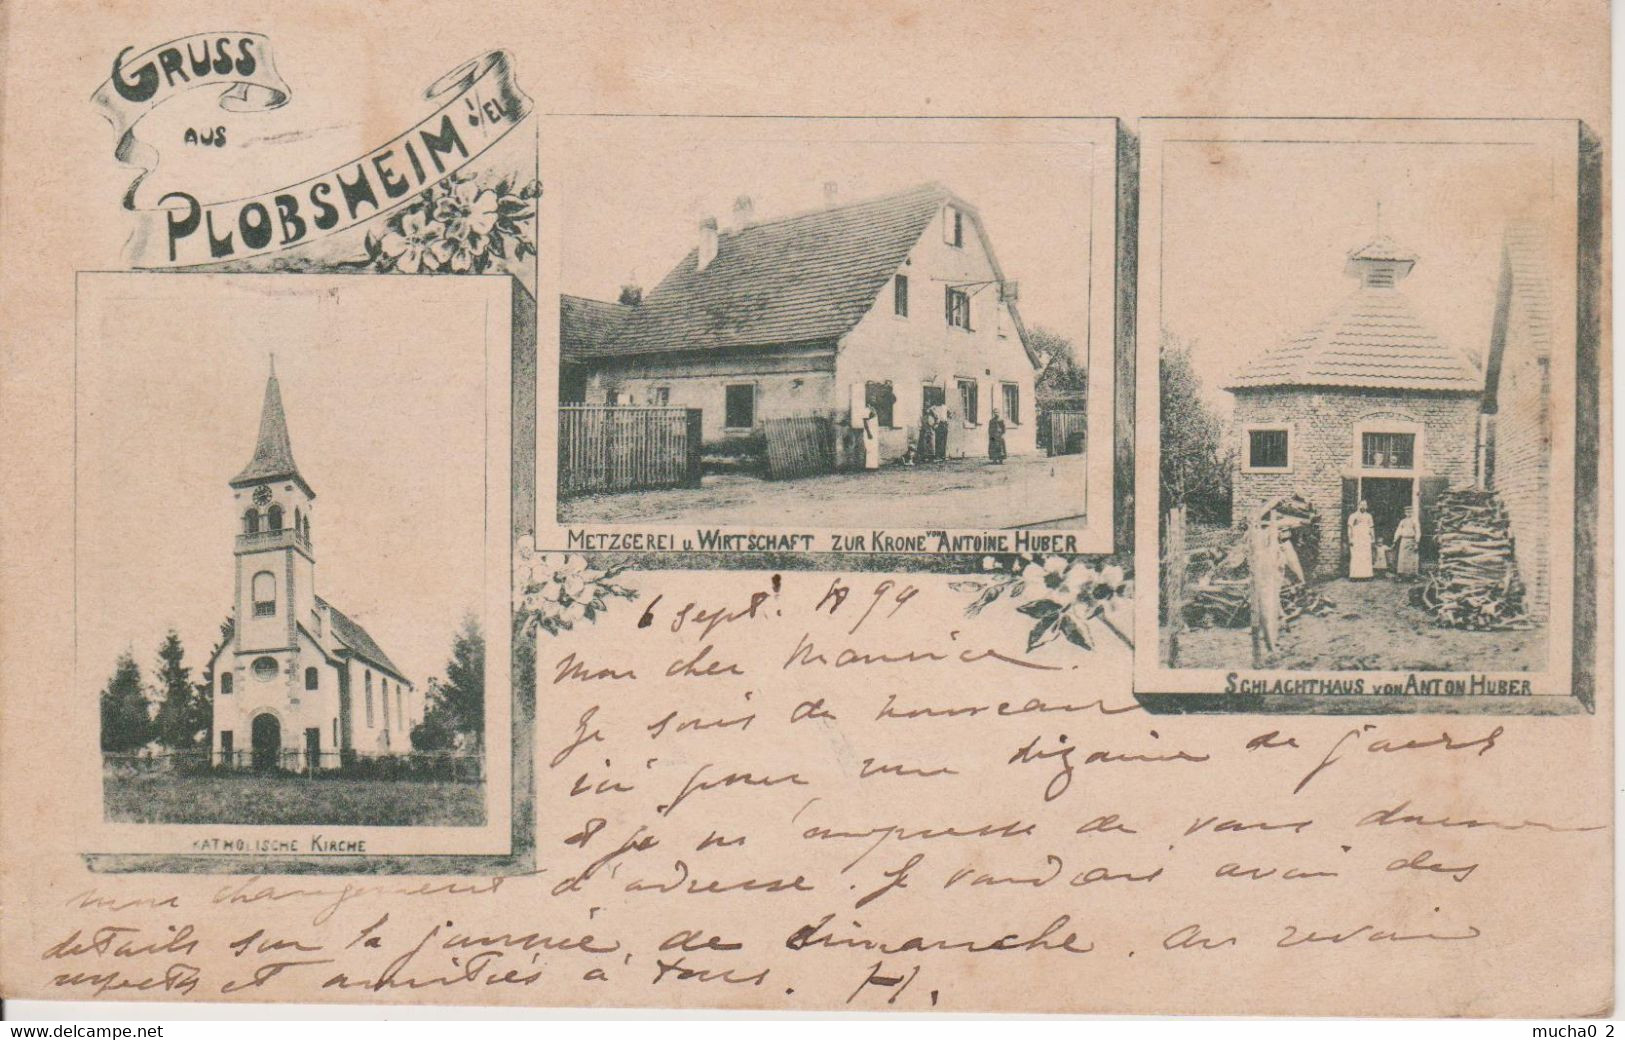 GRUSS
AUS
PLOBSHEIM i/El
METZGEREI u. WIRTSCHAFT ZUR KRONE von ANTOINE HUBER
SCHLACHTHAUS VON ANTON HUBER
KATHOLISCHE KIRCHE
6 sept. 99
Mon cher Maurice.
Je suis de nouveau
ici pour une dizaine de jours
et je m'empresse de vous donner
mon changement d'adresse. Je voudrais avoir des
details sur la journée de dimanche. Au revoir
respects et amitiés à tous. H.
www.delcampe.net
mucha0 2